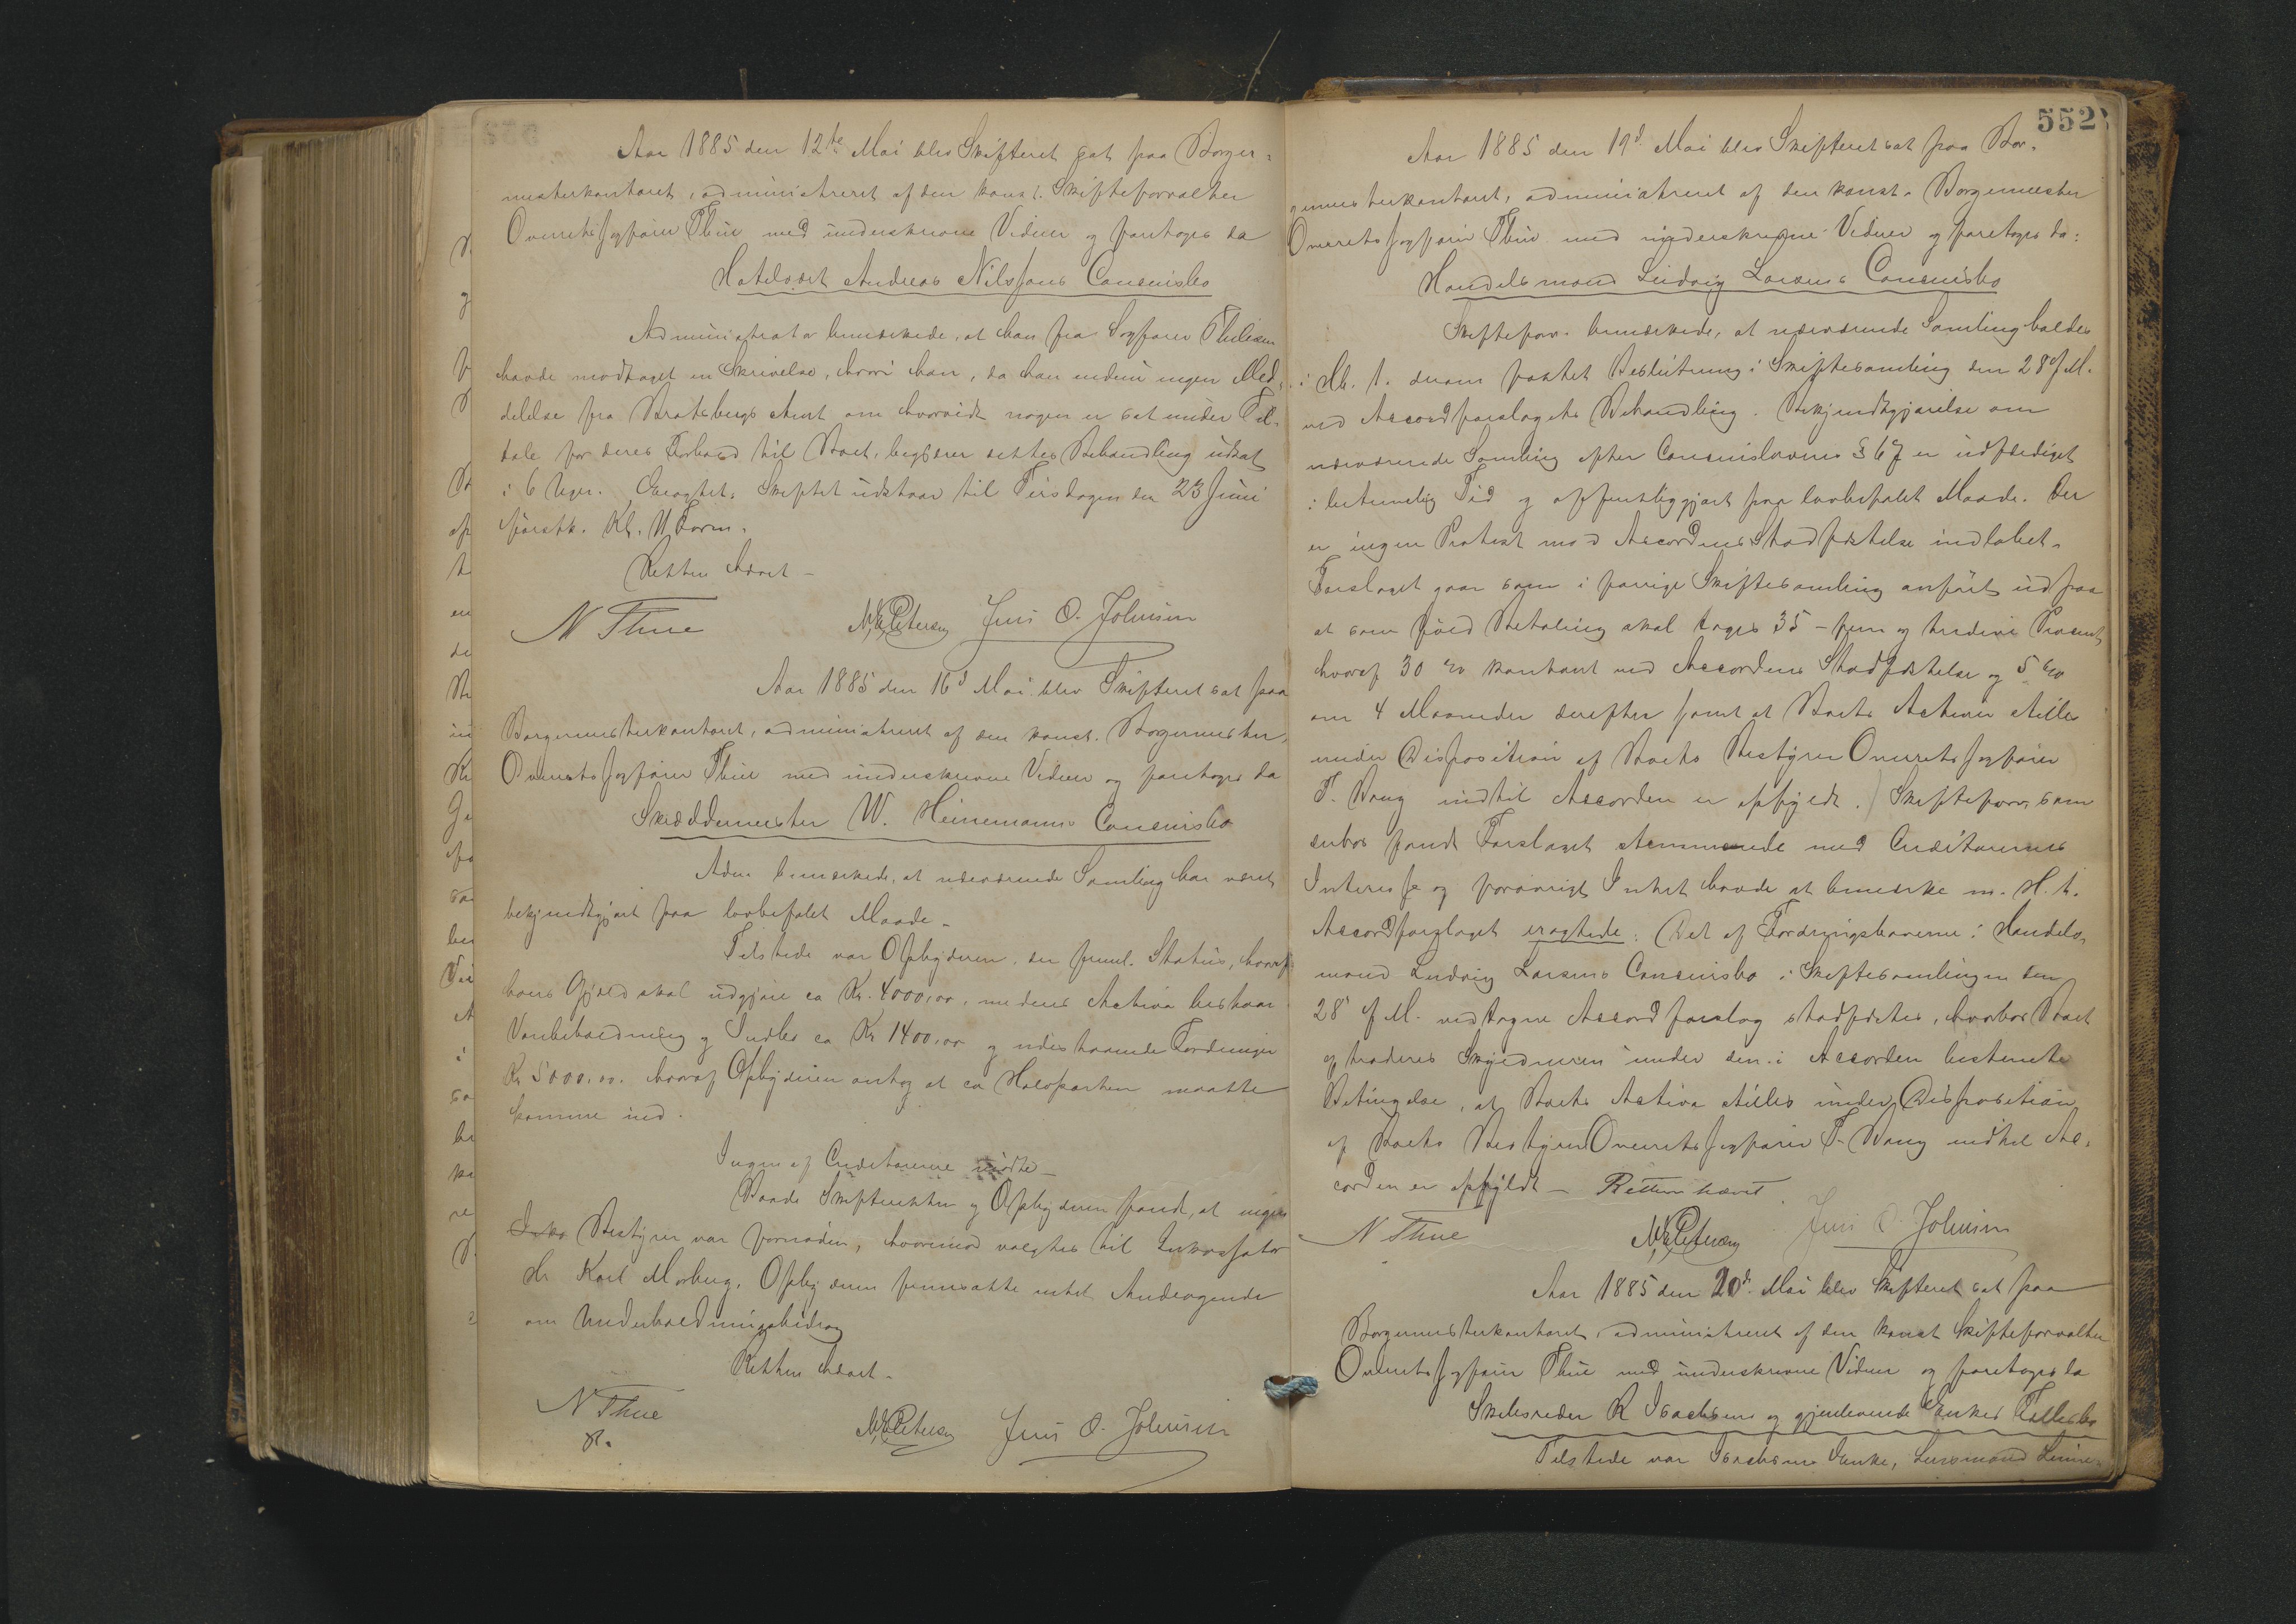 Aar 1885 den 12te Mai blev Skifteret sat paa Borger-
mesterkontoret, administreret af den konst. Skifteforvalter
Overretssagfører Thue med underskrevne Vidner og foretoges da
Hotelvært Andreas Nilssons Concursbo
Administrator bemærkede, at han fra Sagfører
havde modtaget en Skrivelse, hvori han, da han endnu ingen Med-
delelse fra Bratsbergs Amt om hvorvidt nogen er sat under Til-
tale for deres Forhold til Boet, begjærer dettes Behandling udsat
i 6 Uger. Eragtet: Skiftet udstaar til Tirsdagen den 23 Juni
førstk. Kl. 11 Form.
Retten hævet -
N Thue N. E. Petersen Jens O. Johnsen
Aar 1885 den 16d Mai blev Skifteret sat paa
Borgermesterkontoret, administreret af den konst. Borgermester,
Overretssagfører Thue med underskrevne Vidner og foretoges da
Skræddermester W. Heinemanns Concursbo
Adm. bemærkede, at nærværende Samling har været
bekjendtgjort paa lovbefalet Maade.
Tilstede var Opbyderen, der freml. Status, hvoraf
hans Gjæld skal udgjøre ca Kr. 4000,00, medens Activa bestaar
Varebeholdning og Indbo ca Kr 1400,00 og udestaaende Fordringer
Kr 5000,00. hvoraf Opbyderen antog at ca Halvparten maatte
komme ind.
Ingen af Creditorerne mødte -
Baade Skifteretten og Opbyderen fandt, at ingen
Bestyrer var fornøden, hvorimod valgtes til Inkassator
Hr Karl Moberg. Opbyderen fremsatte intet Andragende
om Underholdningsbidrag
Retten hævet -
N Thue N. E. Petersen Jens O. Johnsen
552
Aar 1885 den 19d Mai blev Skifteret sat paa Bor-
germesterkontoret, administreret af den konst. Borgermester
Overretssagfører Thue med underskrevne Vidner og foretoges da:
Handelsmand Ludvig Larsens Concursbo
Skifteforv. bemærkede, at nærværende Samling holdes
i Hh. t. derom fattet Beslutning i Skiftesamling den 28 f. M.
ved Accordforslagets Behandling. Bekjendtgjørelse om
nærværende Samling efter Concurslovens § 67 er udfærdiget
i betimelig Tid og offentliggjort paa lovbefalet Maade. Der
er ingen Protest mod Accordens Stadfæstelse indløbet.
Forslaget gaar som i forrige Skiftesamling anført ud paa
at som fuld Betaling skal tages 35 - fem og tredive Procent,
hvoraf 30 % kontant ved Accordens Stadfæstelse og 5 %
om 4 Maaneder derefter samt at Boets Activa stilles
under Disposition af Boets Bestyrer Overretssagfører
T. Bang indtil Accorden er opfyldt. Skifteforv. som
derhos fandt Forslaget stemmende med Creditorernes
Interesse og forøvrigt Intet havde at bemærke m. H. t.
Accordforslaget eragtede: Det af Fordringshaverne i Handels-
mand Ludvig Larsens Concursbo i Skiftesamlingen den
28 f. M. vedtagne Accordforslag stadfæstes, hvorhos Boet
extraderes Skyldneren under den i Accorden bestemte
Betingelse, at Boets Activa stilles under Disposition
af Boets Bestyrer Overretssagfører T. Bang indtil Ac-
corden er opfyldt - Retten hævet.
N Thue N. E. Petersen Jens O. Johnsen
Aar 1885 den 20d Mai blev Skifteret sat paa
Borgermesterkontoret, administreret af den konst Skifteforvalter
Overretssagfører Thue med underskrevne Vidner og foretoges da
Skibsreder R Isachsens og gjenlevende Enkes Fællesbo
Tilstede var Isachsens Enke, Lensmand